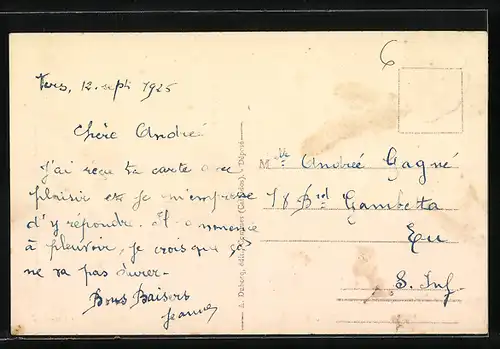 6
Vers, 12 sept 1925
Chère Andrée
J'ai reçu ta carte avec
plaisir et je m'empresse
d'y répondre. Il a commencé
à pleuvoir, je crois que ça
ne va pas durer.
Bons Baisers
Jeanne
A. Dubosq, édit., (Calvados). Déposé
Mlle Andrée Gagné
78 Brd Gambetta
Eu
S. Inf.